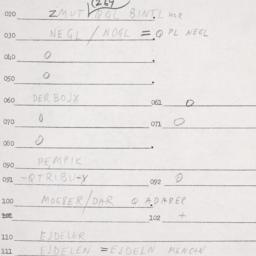 (264
020 ZMUT GGL BINTL me
030 NEGL / NOGL = Q PL NEGL
040 0
050 0
060 DERBOJX 061 0
070 0 071 0
080 0
090 PEMPIK
091 -QTRIBU-Y 092 0
100 MOGBER/DAR Q ADABER
102 +
110 EJDELER
111 EJDELEN = EJDELN